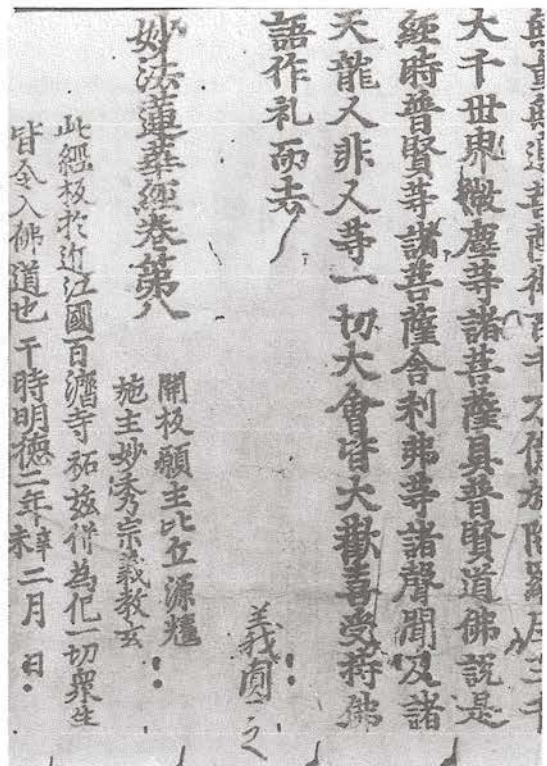 無量無邊菩薩得百千万億旋陀羅尼三千
大千世界微塵等諸菩薩具普賢道佛說是
經時普賢等諸菩薩舍利弗等諸聲聞及諸
天龍人非人等一切大會皆大歡喜受持佛
語作礼而去
義圓之
妙法蓮華經卷第八
開板願主比丘源
施主妙秀宗義教玄
此經板於近江國百濟寺 茲併為化一切衆生
皆令入佛道也于時明德二年辛未二月 日